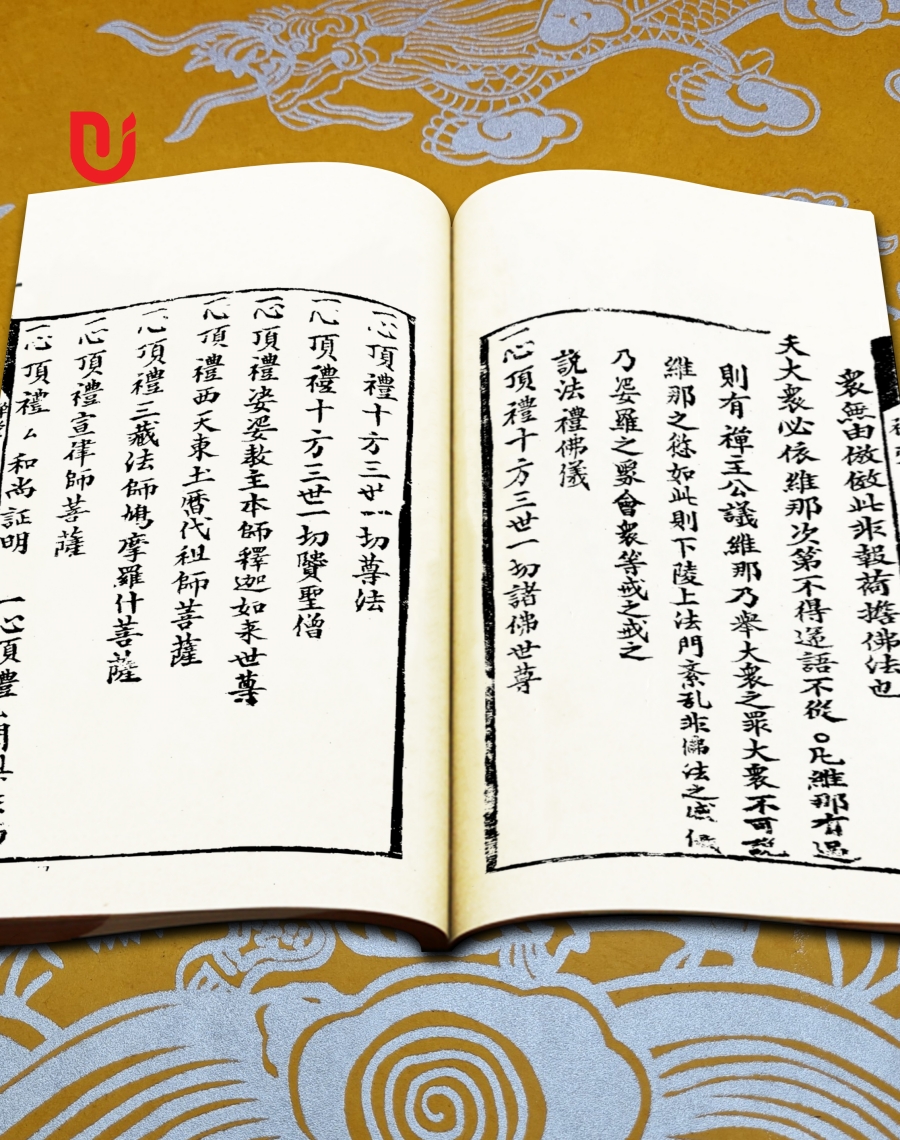 衆無由倣傚此非報荷擔佛法也
夫大衆必依維那次第不得逆語不從○凡維那有過
則有禪主公議維那乃舉大衆之罪大衆不可説
維那之愆如此則下陵上法門紊乱非佛法之
乃娑羅之霧會衆等戒之戒之
説法禮佛儀
一心頂禮十方三世一切諸佛世尊
一心頂禮十方三世一切尊法
一心頂禮十方三世一切賢聖僧
一心頂禮娑婆教主本師釋迦如来世尊
一心頂禮西天東土曆代祖師菩薩
一心頂禮三藏法師鳩摩羅什菩薩
一心頂禮宣律師菩薩
一心頂禮ム和尚証明 一心頂禮